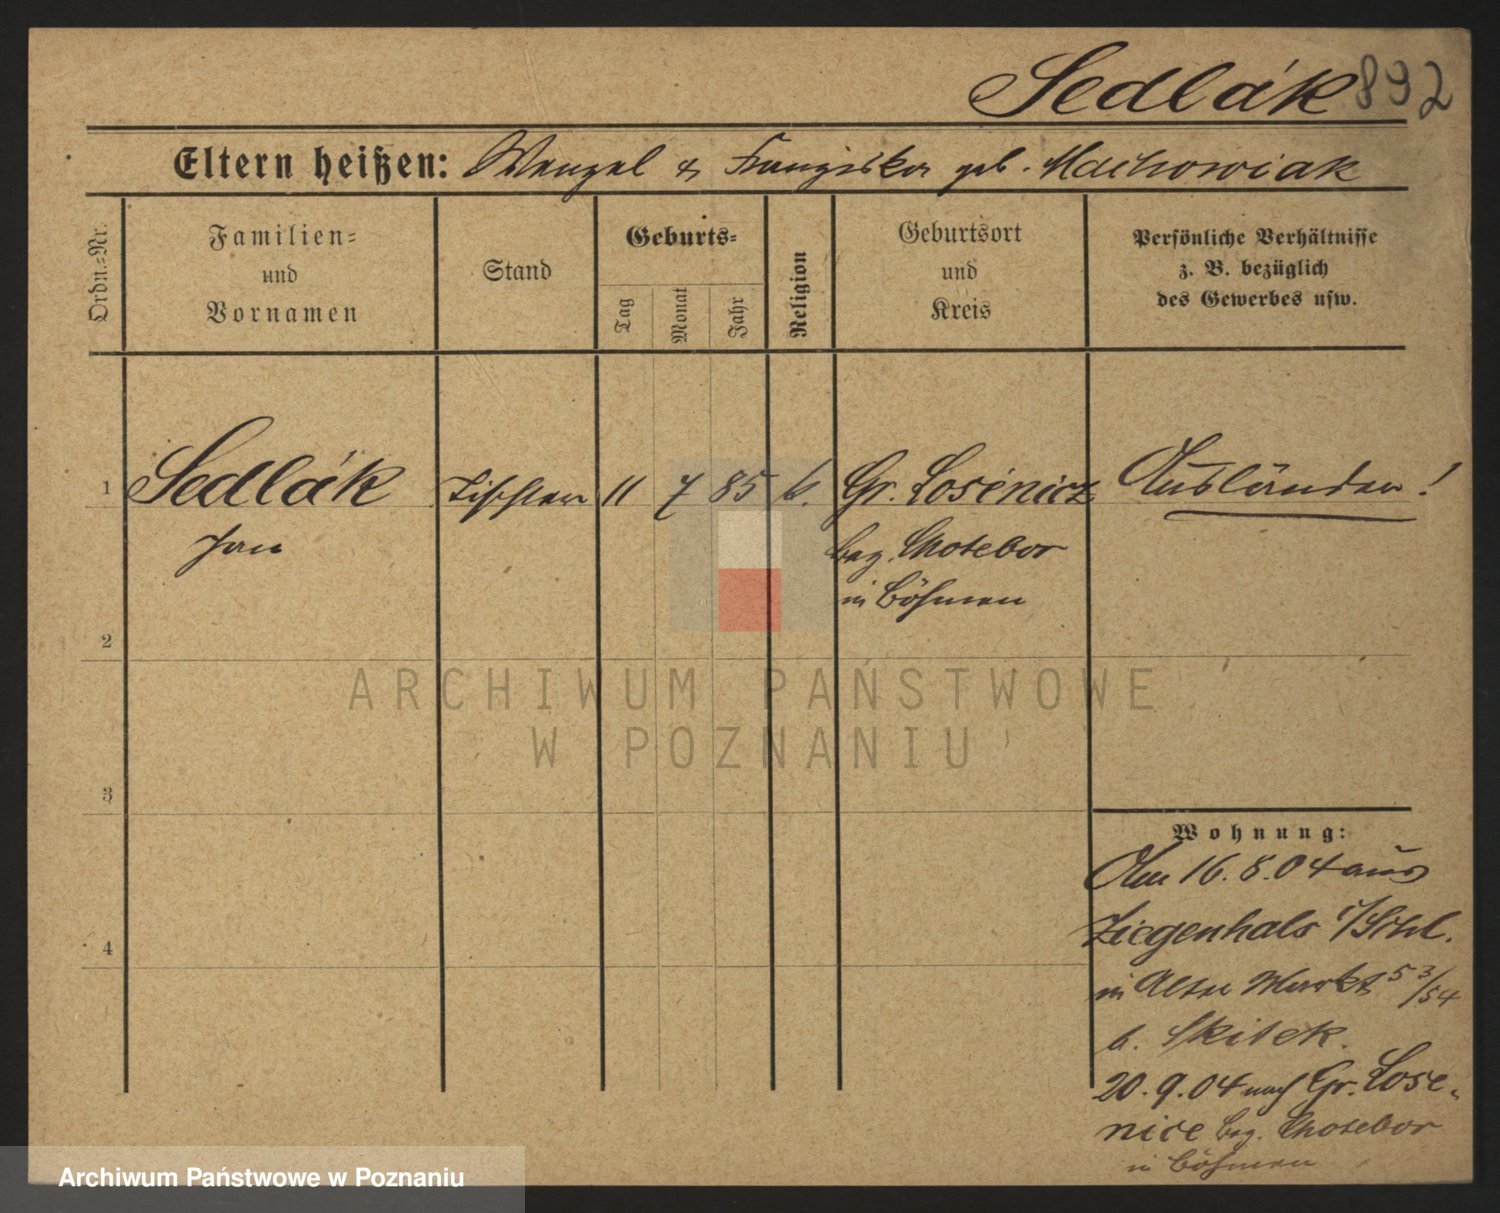 Sedlák 892
Eltern heißen: Wenzel & Franziska geb. Machowiak
Ordn.-Nr.
Familien-
und
Vornamen
Stand
Geburts-
Tag
Monat
Jahr
Religion
Geburtsort
und
Kreis
Persönliche Verhältnisse
z. B. bezüglich
des Gewerbes usw.
1 Sedlák Tischler 11 7 85 k. Gr. Losénicz Ausländer!
Jan
Bez. Chotebor
in Böhmen
2
3
4
Wohnung:
Am 16.8.04 aus
Ziegenhals i/Schl.
in Alter Markt 53/54
b. Skitek.
20.9.04 nach Gr. Lose-
nice Bez. Chotebor
in Böhmen
ARCHIWUM PAŃSTWOWE
W POZNANIU
Archiwum Państwowe w Poznaniu